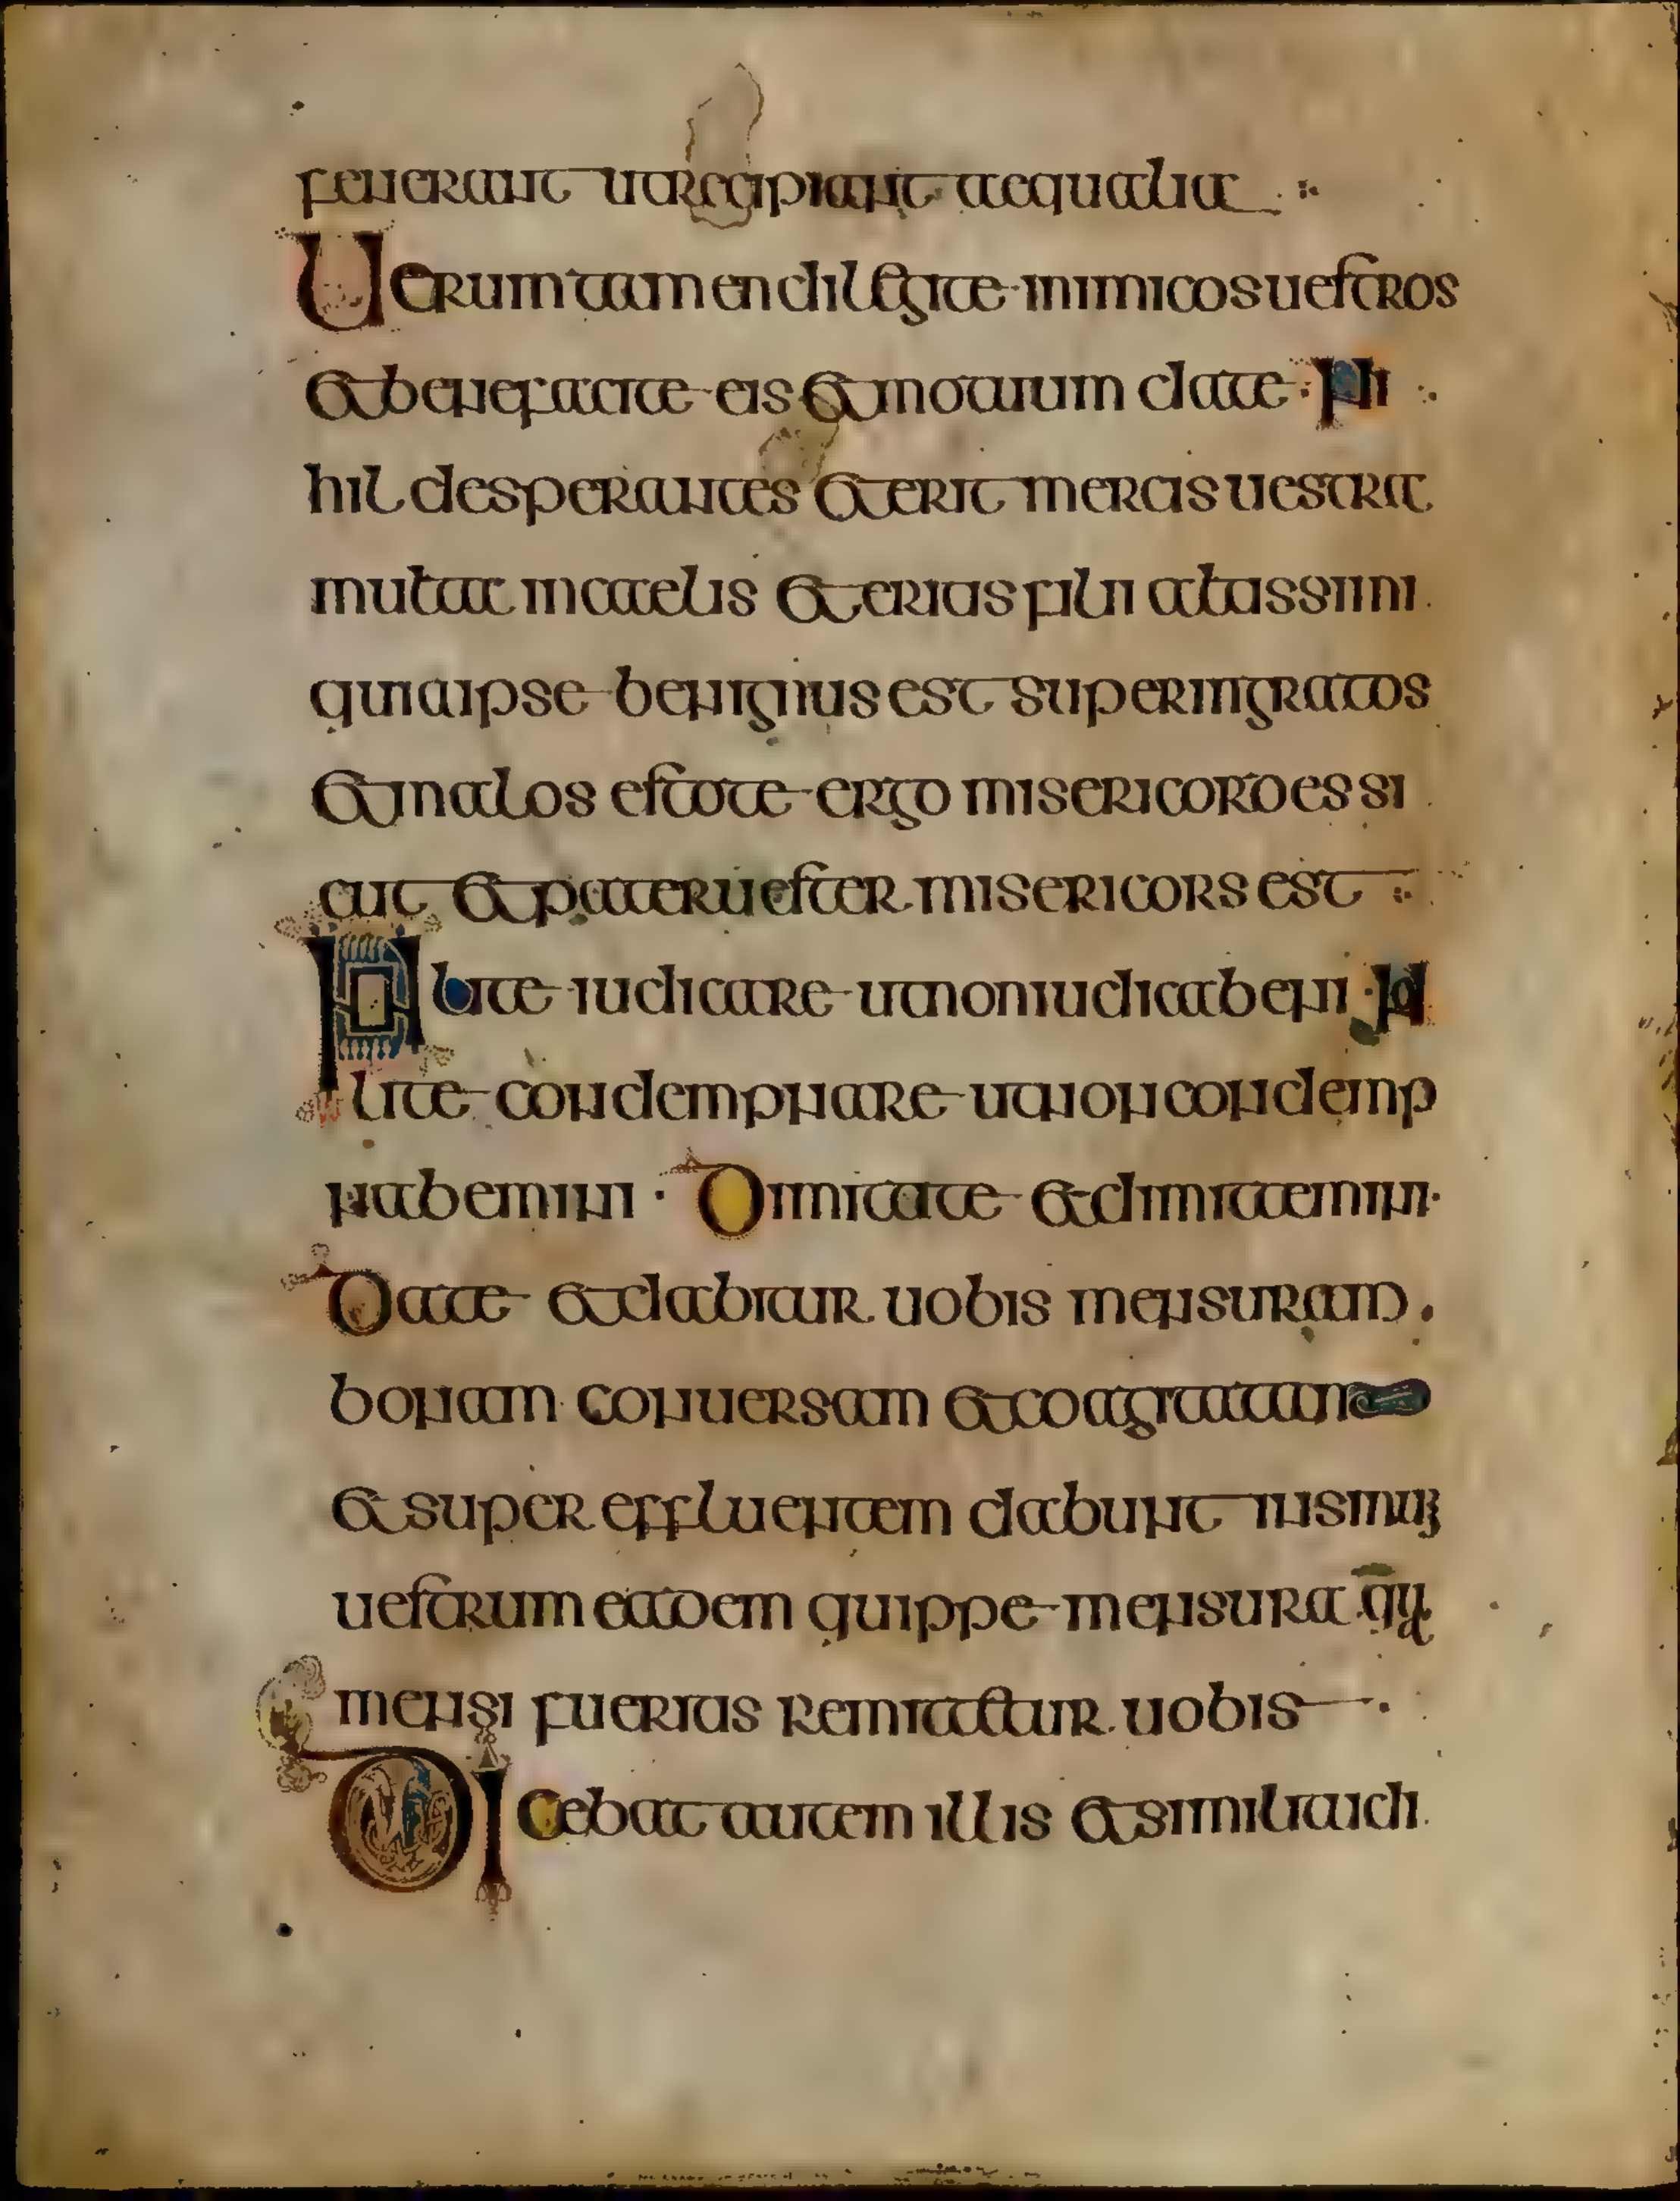 fenerant ut recipiant aequalia
Uerumtamen diligite inimicos uestros
et benefacite eis et motuum date Ni
hil desperantes et erit mercis uestra
multa in caelis et eritis filii altissimi
quia ipse benignus est super ingratos
et malos estote ergo misericordes si
cut et pater uester misericors est
Nolite iudicare ut non iudicabemini No
lite condempnare ut non condemp
nabemini · Dimitate et dimittemini ·
Date et dabitur uobis mensuram ·
bonam conuersam et coagitatam
et super effluentem dabunt in sinuȝ
uestrum eadem quippe mensura qua
mensi fueritis remittetur uobis ·
Dicebat autem illis et similitudi